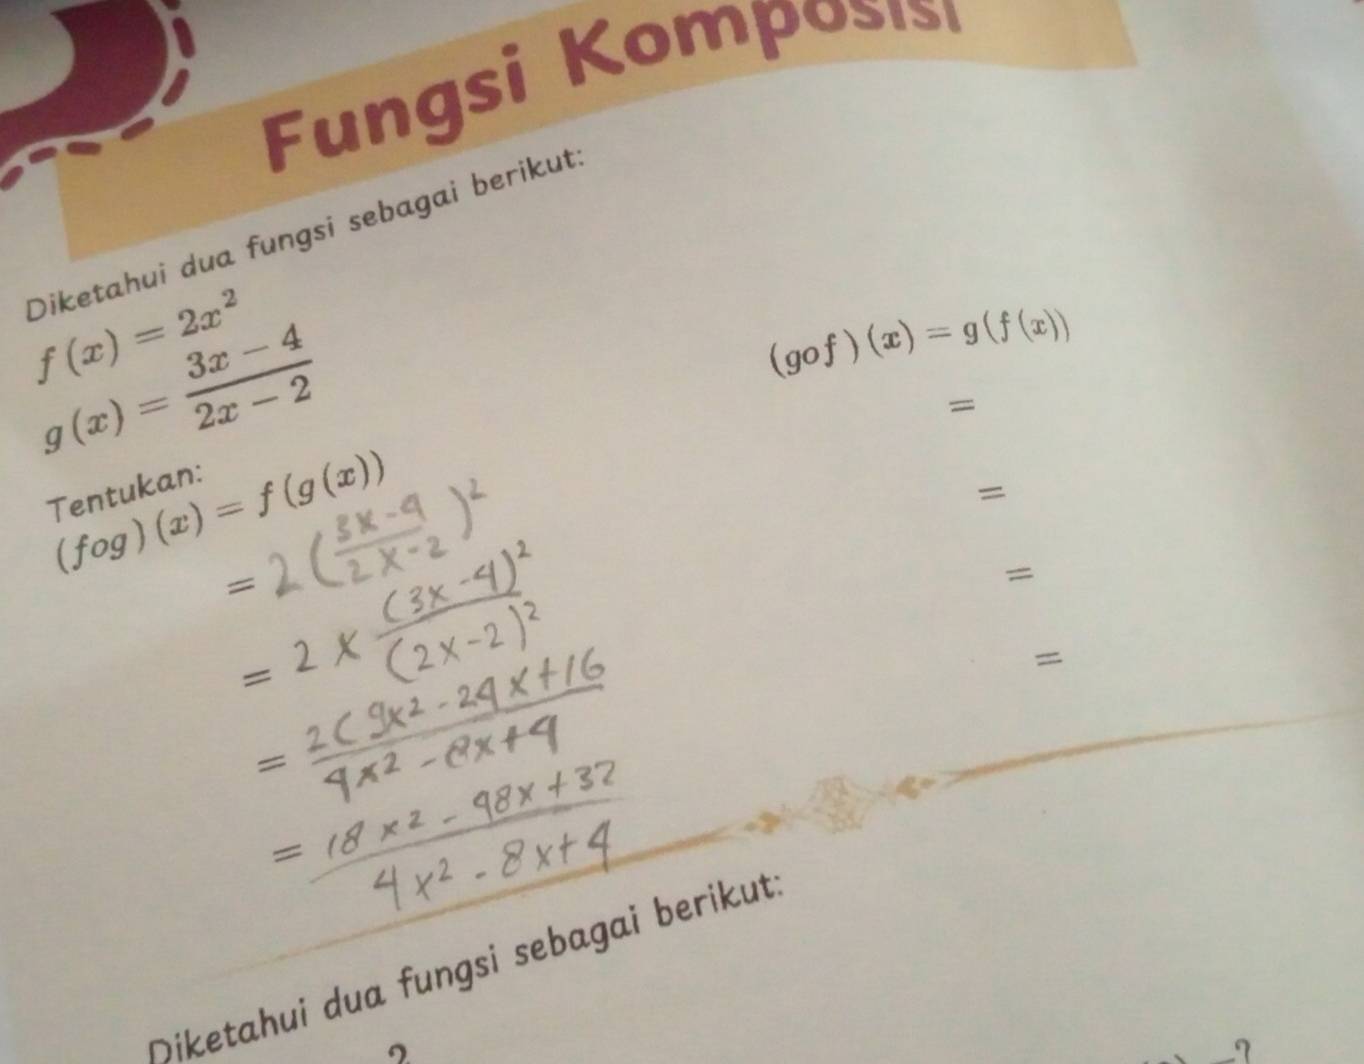 Fungsi Komposisi
Diketahui dua fungsi sebagai berikut:
f(x) = 2x²
g(x) = (3x − 4)/(2x − 2)
Tentukan:
(fog)(x) = f(g(x))
= 2((3x-4)/(2x-2))²
= 2 × (3x-4)²/(2x-2)²
= 2(9x²-24x+16/4x²-8x+4
= 18x²-48x+32/4x²-8x+4
(gof)(x) = g(f(x))
=
=
=
=
Diketahui dua fungsi sebagai berikut: